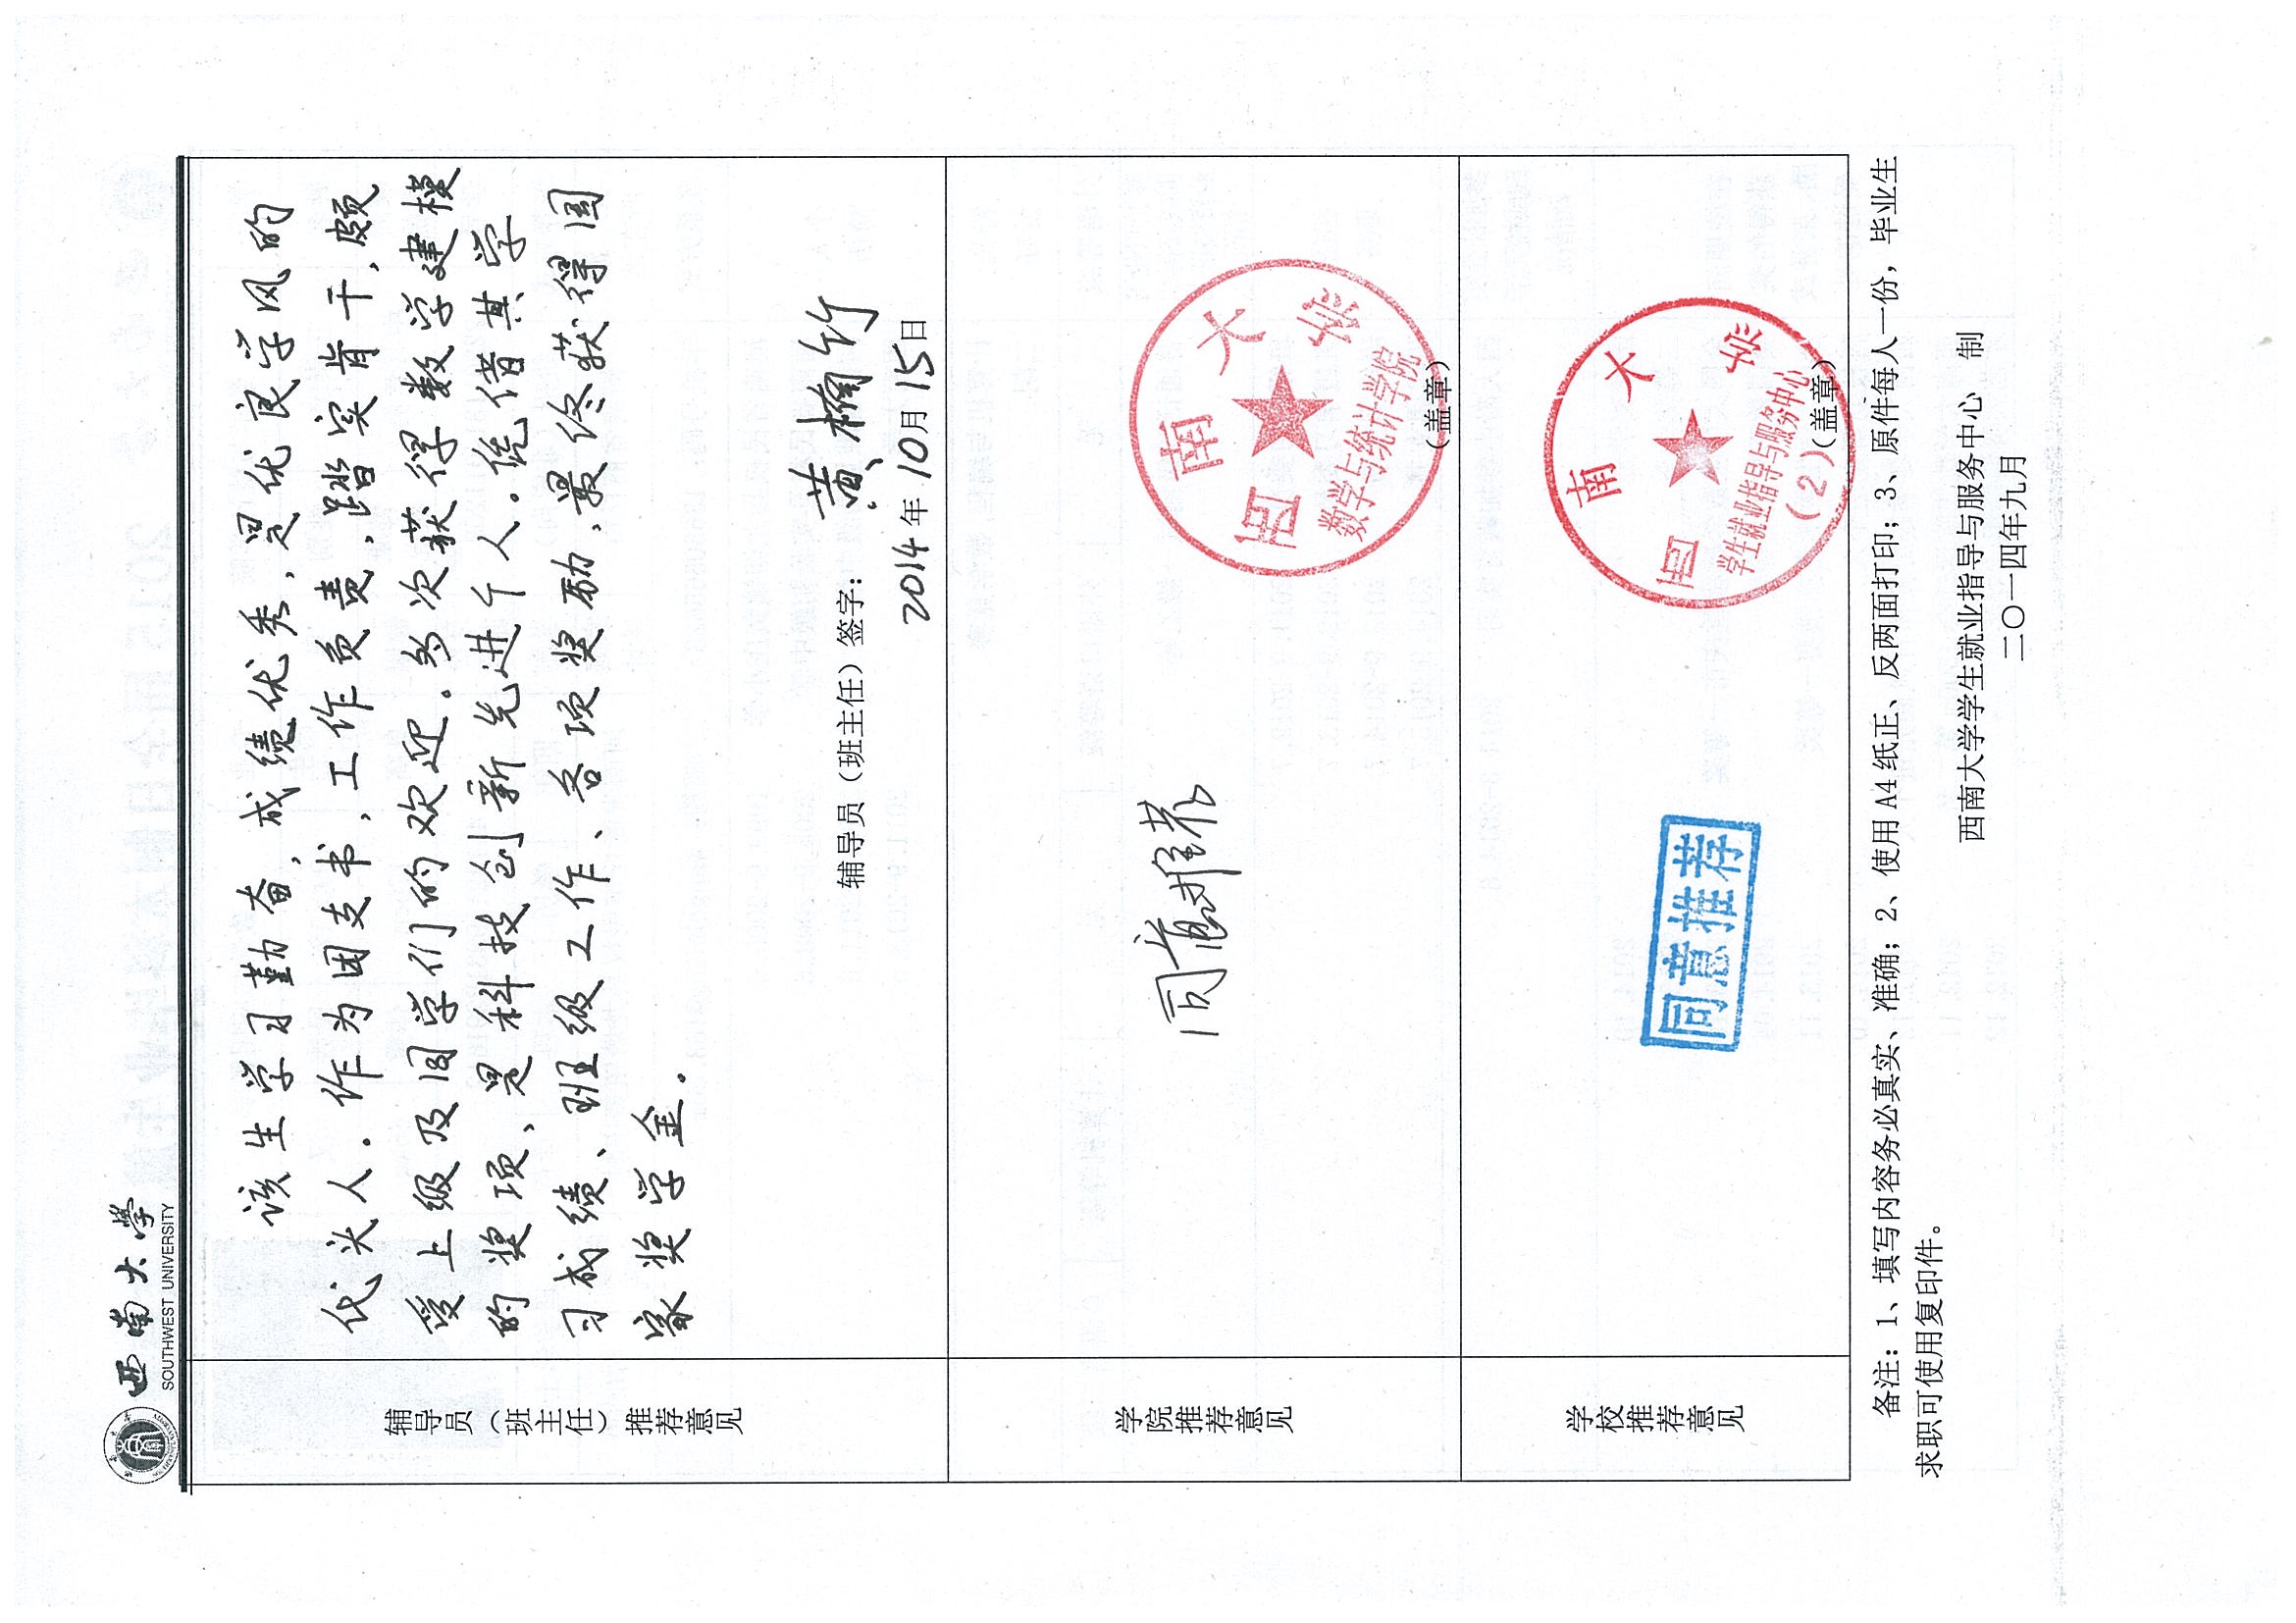 西南大学
SOUTHWEST UNIVERSITY
辅导员（班主任）推荐意见
该生学习勤奋，成绩优秀，是优良学风的
代头人。作为团支书，工作负责，踏实肯干，颇
受上级及同学们的欢迎。多次获得数学建模
的奖项，是科技创新先进个人。凭借其学
习成绩、班级工作、各项奖励，最终获得国
家奖学金。
辅导员（班主任）签字：黄楠竹
2014年10月15日
学院推荐意见
同意推荐
西南大学
数学与统计学院
（盖章）
学校推荐意见
同意推荐
西南大学
学生就业指导与服务中心
（2）
（盖章）
备注：1、填写内容务必真实、准确；2、使用 A4 纸正、反两面打印；3、原件每人一份，毕业生
求职可使用复印件。
西南大学学生就业指导与服务中心 制
二〇一四年九月